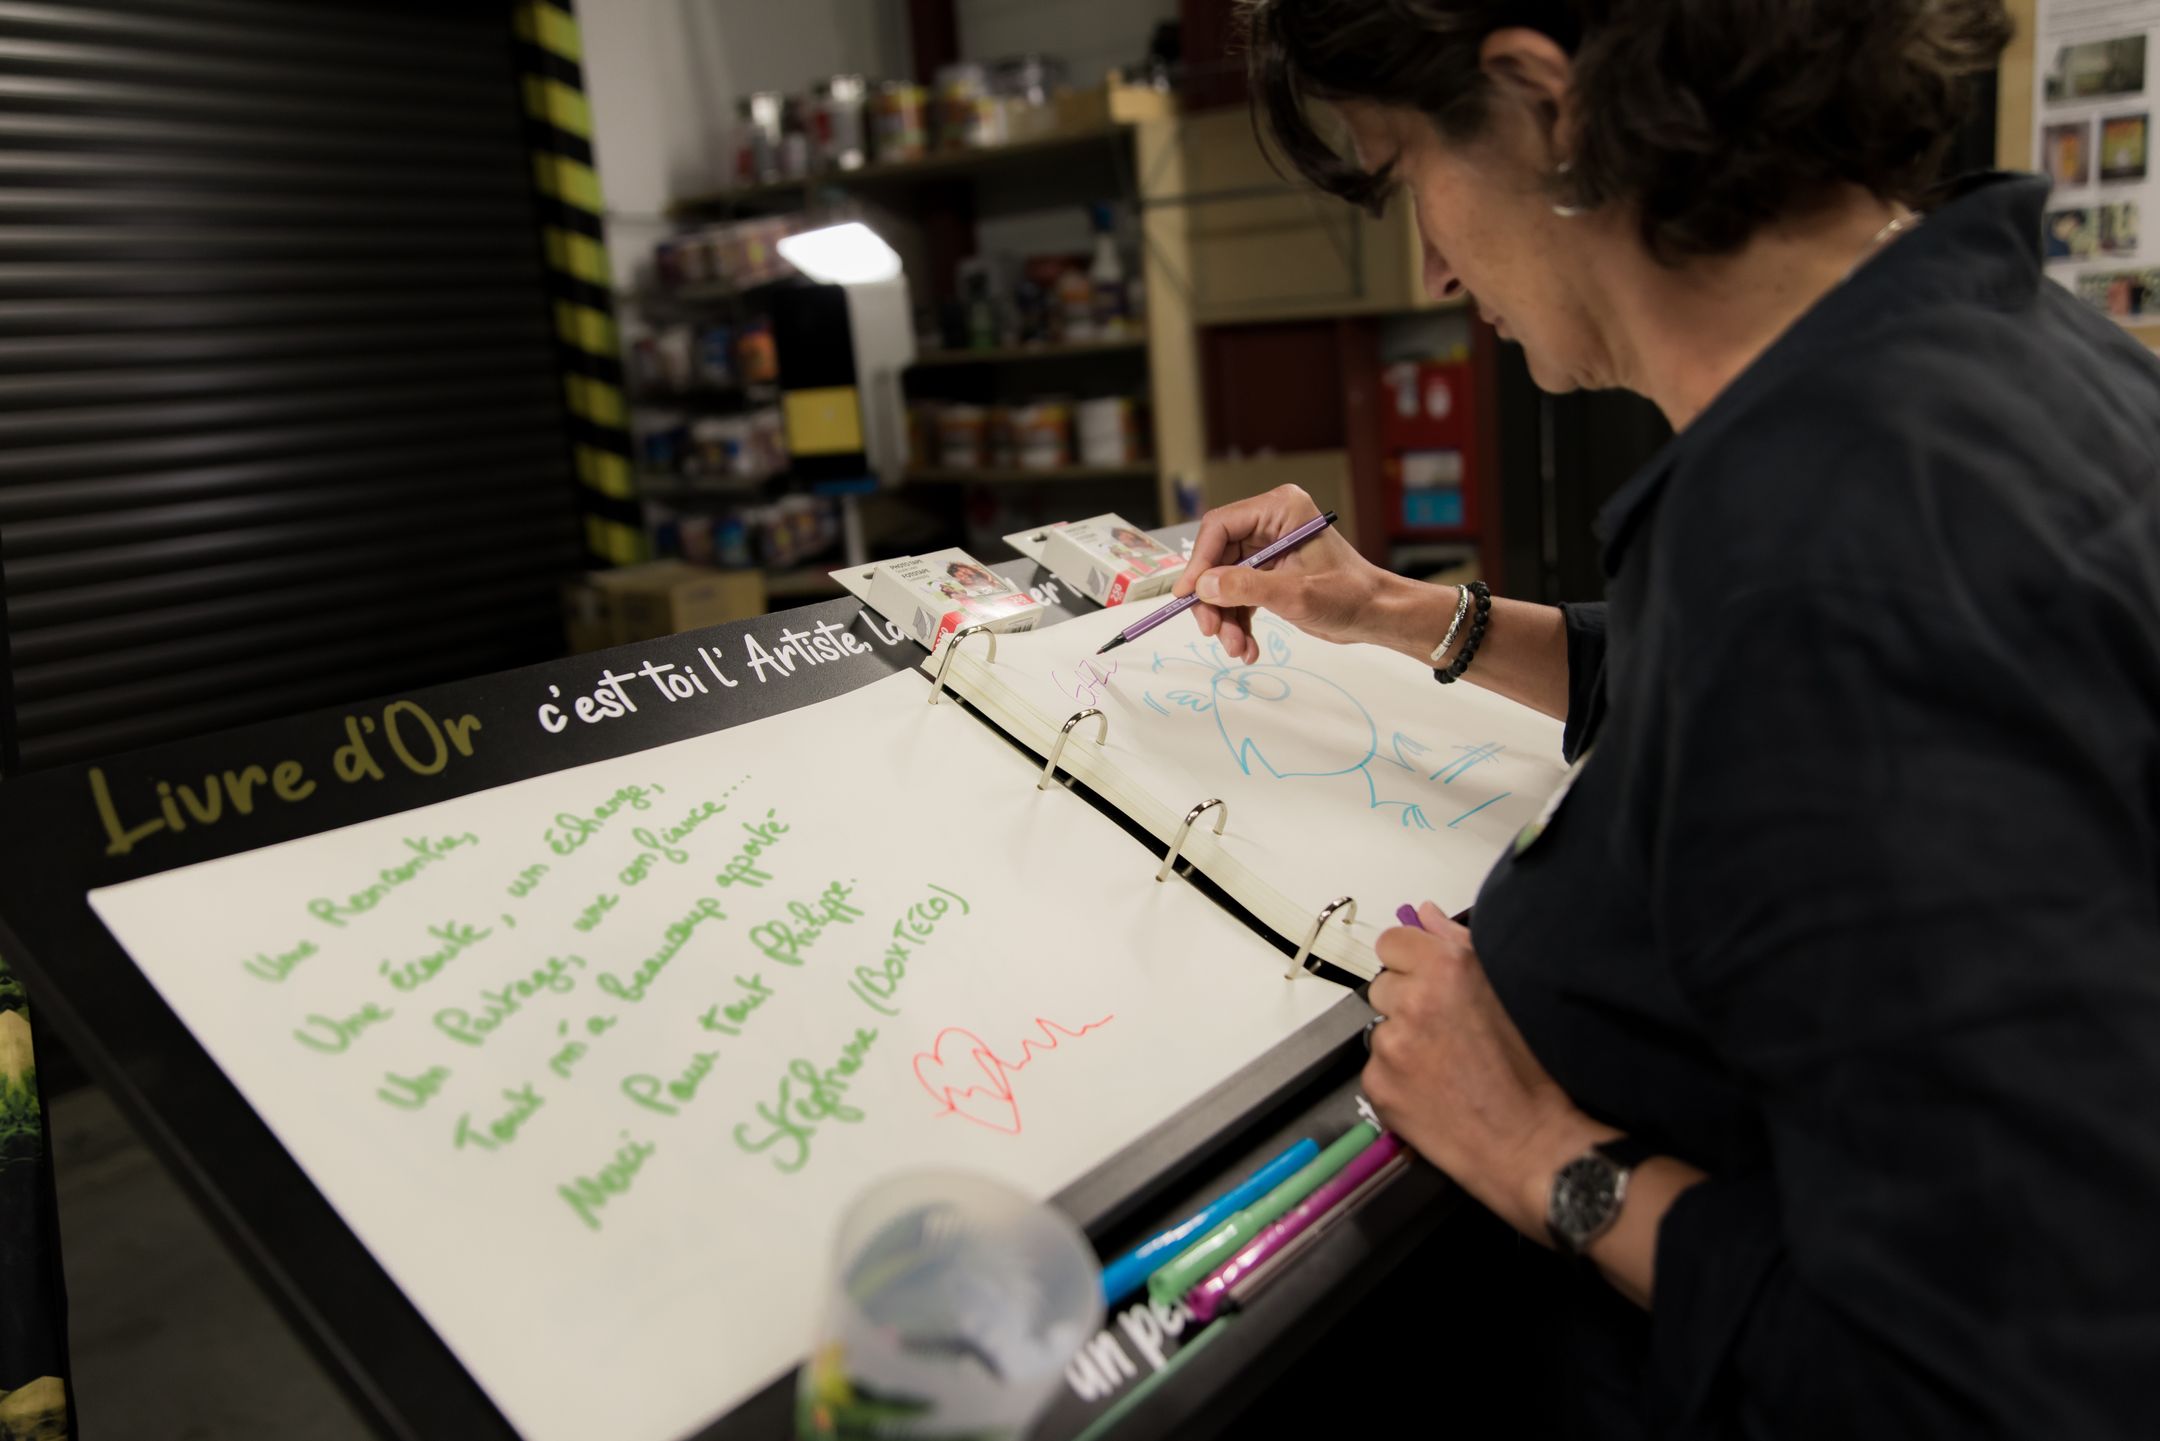 Livre d'Or c'est toi l'Artiste,
Une Rencontre,
Une écoute, un échange,
Un Partage, une confiance....
Tout m'a beaucoup apporté
Merci Pour tout Philippe.
Stéphane (BOXTECO)
PHOTO TAPE
FOTOTAPE
250
250
un